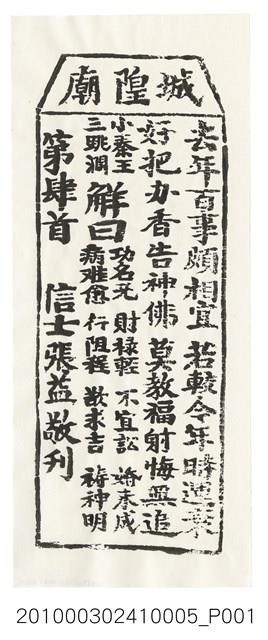 城隍廟
去年百事頗相宜　若較今年時運衰
好把办香告神佛　莫教福謝悔無追
小秦王三跳澗
解曰
功名无　財祿輕　不宜訟　婚春成
病难愈　行阻程　欲求吉　禱神明
第肆首　信士張益敬刋
201000302410005_P001